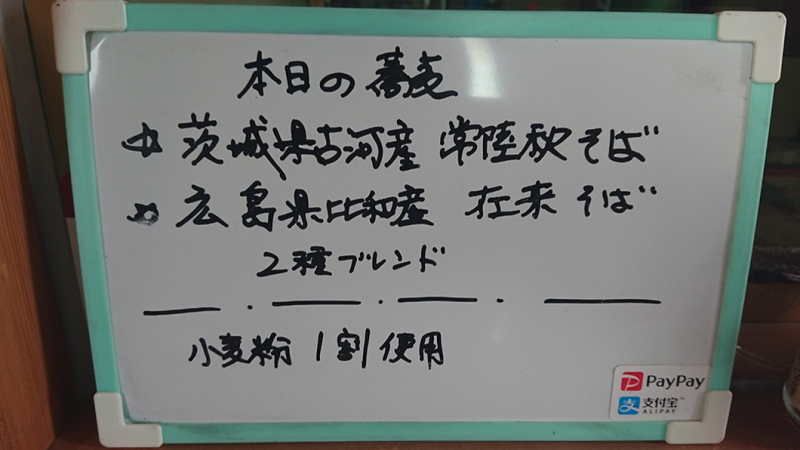 本日の蕎麦
☆茨城県古河産 常陸秋そば
☆広島県比和産 在来そば
2種ブレンド
小麦粉1割使用
PayPay
支付宝™
ALIPAY